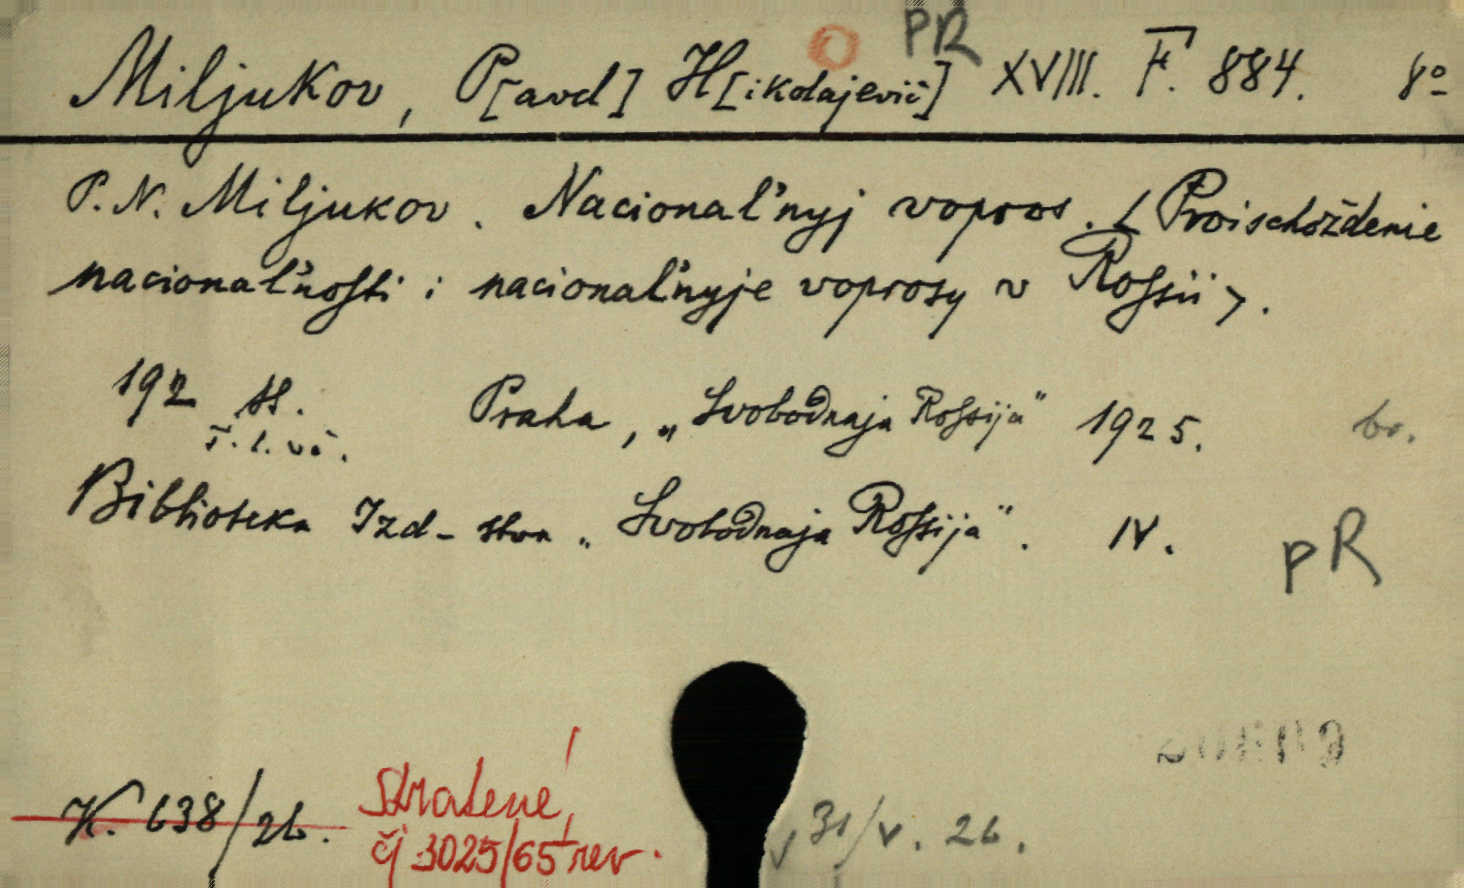 PR
Miljukov, P[avel] N[ikolajevič] XVIII. F. 884. 8º
P. N. Miljukov. Nacional'nyj vopros. <Proischoždenie
nacional'nosti i nacional'nyje voprosy v Rossii>.
192 ss. Praha, „Svobodnaja Rossija" 1925. br.
T. l. vč.
Biblioteka Izd-stva „Svobodnaja Rossija". IV.
pR
K. 638/26. Stratené!
čj 3025/65 rev. 31/V. 26.